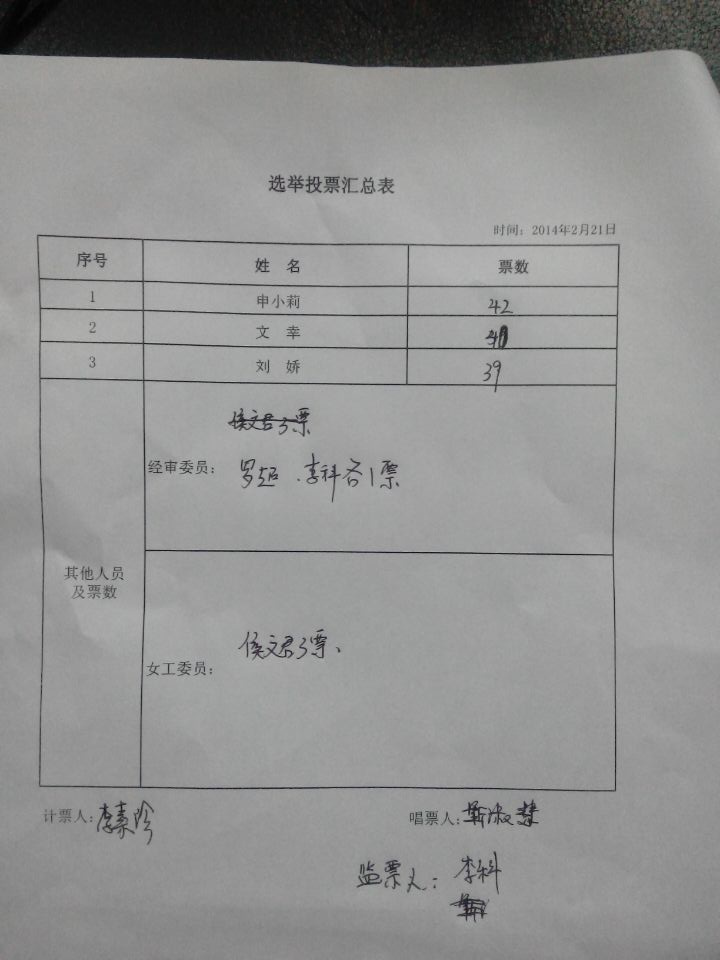 选举投票汇总表
时间：2014年2月21日
序号 姓 名 票数
1 申小莉 42
2 文 幸
3 刘 娇 39
侯文君3票
经审委员： 罗超、李科各1票
其他人员
及票数
侯文君3票、
女工委员：
计票人：李素珍 唱票人：靳淑慧
监票人：李科